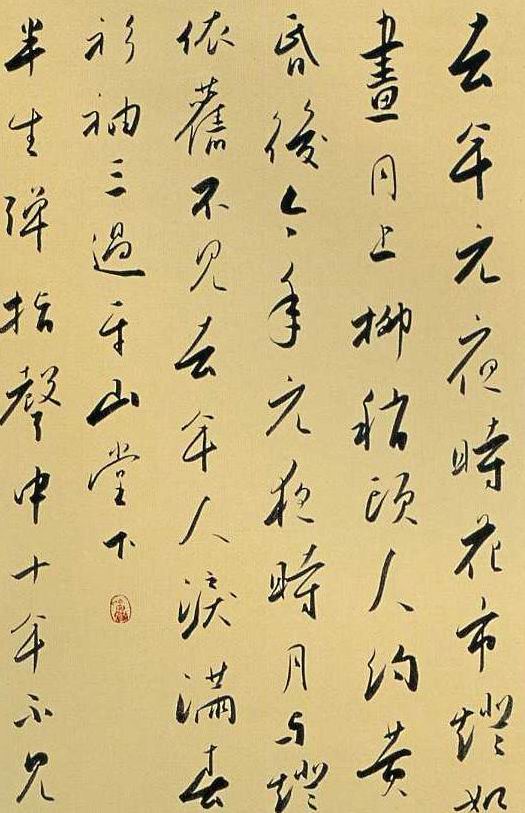 去年元夜時花市燈如
畫月上柳稍頭人約黄
昏後今年元夜時月与燈
依舊不見去年人淚滿春
衫袖三過平山堂下
半生彈指聲中十年不見